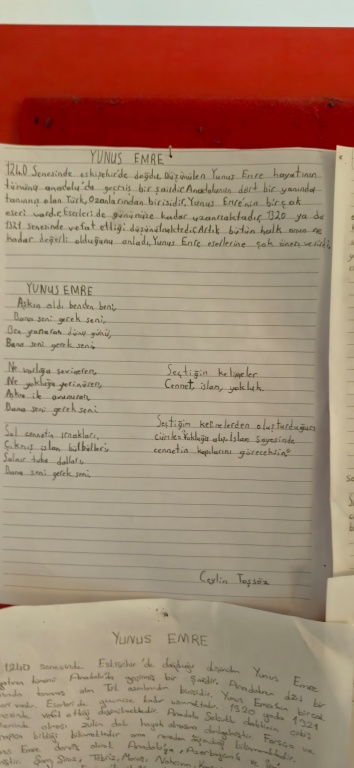 YUNUS EMRE
1240 Senesinde eskişehir'de doğdu. Düşünülen Yunus Emre hayatının
tümünü anadolu'da geçmiş bir şairdir. Anadolunun dört bir yanında
tanınmış olan Türk, Ozanlarından birisidir. Yunus Emre'nin bir çok
eseri vardır. Eserleri de günümüze kadar uzanmaktadır. 1320 ya da
1321 senesinde vefat ettiği düşünülmektedir. Artık bütün halk onun ne
kadar değerli olduğunu anladı. Yunus Emre eserlerine çok önem verildi.
YUNUS EMRE
Aşkın aldı benden beni,
Bana seni gerek seni,
Ben yanarım dünü günü,
Bana seni gerek seni,
Ne varlığa sevinirem,
Ne yokluğa yerinirem,
Aşkın ile avunuram,
Bana seni gerek seni
Seçtiğin kelimeler
Cennet, islam, yokluk.
Seçtiğin kelimelerden oluşturduğum
cümle: Yokluğa alış. İslam sayesinde
cennetin kapılarını göreceksin"
Sol cennetin ırmakları,
islam bülbülleri
Salınır tuba dalları
Bana seni gerek seni
Ceylin Taşsöz
YUNUS EMRE
1240 senesinde Eskişehir'de doğduğu düşünülen Yunus Emre
Anadolu'da geçirmiş bir Şairdir. Anadolunun dört bir
tanınmış olan Türk ozanlarından birisidir. Yunus Emre'nin birçok
vardır. Eserleri de günümüze kadar uzanmaktadır. 1320 yada 1321
senesinde vefat ettiği düşünülmektedir. Anadolu Selçuklu
Farsça ve
bildiği bilinmektedir ama nereden öğrendiği bilinmemektedir.
Emre derviş olarak Anadolu'ya, Azerbaycan'a ve
Şam, Tebriz, Maraş, Nahcivan,